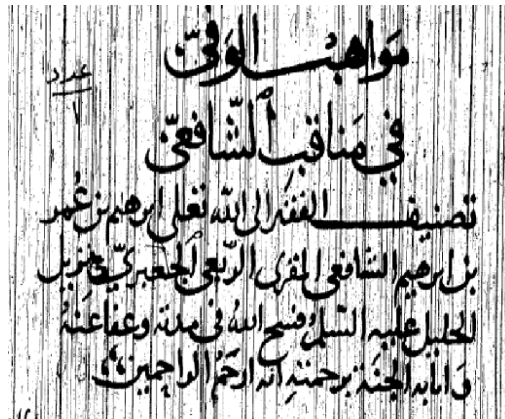 مَواهبُ الوَفيّ
عدد
١
في مَناقبِ الشَّافعيّ
تصنيف الفقير الى الله تعلى ابرهيم بن عُمر
بن ابرهيم الشافعي المقرى الربعي الجعبريّ نزيل
الخليل عليه السلم فسح اللهُ في مدته وعفا عَنهُ
وَاثابه الجنة برحمته انه ارحمُ الراحمين